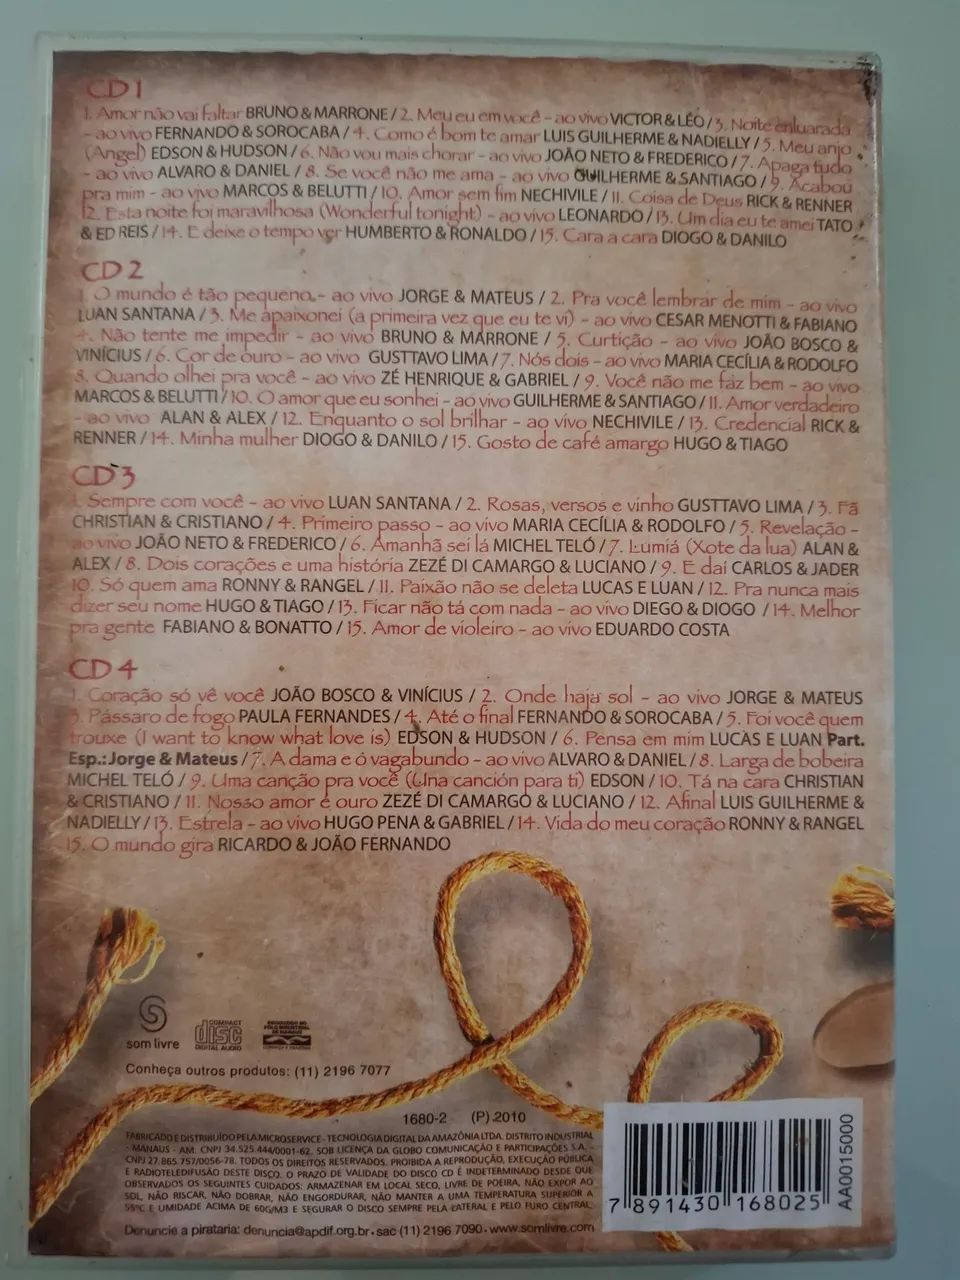 CD 1
1. Amor não vai faltar BRUNO & MARRONE / 2. Meu eu em você - ao vivo VICTOR & LÉO / 3. Noite enluarada
- ao vivo FERNANDO & SOROCABA / 4. Como é bom te amar LUIS GUILHERME & NADIELLY / 5. Meu anjo
(Angel) EDSON & HUDSON / 6. Não vou mais chorar - ao vivo JOÃO NETO & FREDERICO / 7. Apaga tudo
- ao vivo ALVARO & DANIEL / 8. Se você não me ama - ao vivo GUILHERME & SANTIAGO / 9. Acabou
pra mim - ao vivo MARCOS & BELUTTI / 10. Amor sem fim NECHIVILE / 11. Coisa de Deus RICK & RENNER
12. Esta noite foi maravilhosa (Wonderful tonight) - ao vivo LEONARDO / 13. Um dia eu te amei TATO
& ED REIS / 14. E deixe o tempo ver HUMBERTO & RONALDO / 15. Cara a cara DIOGO & DANILO
CD 2
1. O mundo é tão pequeno - ao vivo JORGE & MATEUS / 2. Pra você lembrar de mim - ao vivo
LUAN SANTANA / 3. Me apaixonei (a primeira vez que eu te vi) - ao vivo CESAR MENOTTI & FABIANO
4. Não tente me impedir - ao vivo BRUNO & MARRONE / 5. Curtição - ao vivo JOÃO BOSCO &
VINÍCIUS / 6. Cor de ouro - ao vivo GUSTTAVO LIMA / 7. Nós dois - ao vivo MARIA CECÍLIA & RODOLFO
8. Quando olhei pra você - ao vivo ZÉ HENRIQUE & GABRIEL / 9. Você não me faz bem - ao vivo
MARCOS & BELUTTI / 10. O amor que eu sonhei - ao vivo GUILHERME & SANTIAGO / 11. Amor verdadeiro
- ao vivo ALAN & ALEX / 12. Enquanto o sol brilhar - ao vivo NECHIVILE / 13. Credencial RICK &
RENNER / 14. Minha mulher DIOGO & DANILO / 15. Gosto de café amargo HUGO & TIAGO
CD 3
1. Sempre com você - ao vivo LUAN SANTANA / 2. Rosas, versos e vinho GUSTTAVO LIMA / 3. Fã
CHRISTIAN & CRISTIANO / 4. Primeiro passo - ao vivo MARIA CECÍLIA & RODOLFO / 5. Revelação -
ao vivo JOÃO NETO & FREDERICO / 6. Amanhã sei lá MICHEL TELÓ / 7. Lumiá (Xote da lua) ALAN &
ALEX / 8. Dois corações e uma história ZEZÉ DI CAMARGO & LUCIANO / 9. E daí CARLOS & JADER
10. Só quem ama RONNY & RANGEL / 11. Paixão não se deleta LUCAS E LUAN / 12. Pra nunca mais
dizer seu nome HUGO & TIAGO / 13. Ficar não tá com nada - ao vivo DIEGO & DIOGO / 14. Melhor
pra gente FABIANO & BONATTO / 15. Amor de violeiro - ao vivo EDUARDO COSTA
CD 4
1. Coração só vê você JOÃO BOSCO & VINÍCIUS / 2. Onde haja sol - ao vivo JORGE & MATEUS
3. Pássaro de fogo PAULA FERNANDES / 4. Até o final FERNANDO & SOROCABA / 5. Foi você quem
trouxe (I want to know what love is) EDSON & HUDSON / 6. Pensa em mim LUCAS E LUAN Part.
Esp.: Jorge & Mateus / 7. A dama e o vagabundo - ao vivo ALVARO & DANIEL / 8. Larga de bobeira
MICHEL TELÓ / 9. Uma canção pra você (Una canción para ti) EDSON / 10. Tá na cara CHRISTIAN
& CRISTIANO / 11. Nosso amor é ouro ZEZÉ DI CAMARGO & LUCIANO / 12. Afinal LUIS GUILHERME &
NADIELLY / 13. Estrela - ao vivo HUGO PENA & GABRIEL / 14. Vida do meu coração RONNY & RANGEL
15. O mundo gira RICARDO & JOÃO FERNANDO
som livre
COMPACT disc DIGITAL AUDIO
PRODUZIDO NO
PÓLO INDUSTRIAL
DE MANAUS
Conheça outros produtos: (11) 2196 7077
1680-2 (P) 2010
FABRICADO E DISTRIBUÍDO PELA MICROSERVICE - TECNOLOGIA DIGITAL DA AMAZÔNIA LTDA. DISTRITO INDUSTRIAL
- MANAUS - AM. CNPJ 34.525.444/0001-62. SOB LICENÇA DA GLOBO COMUNICAÇÃO E PARTICIPAÇÕES S.A. -
CNPJ 27.865.757/0056-78. TODOS OS DIREITOS RESERVADOS. PROIBIDA A REPRODUÇÃO, EXECUÇÃO PÚBLICA
E RADIOTELEDIFUSÃO DESTE DISCO. O PRAZO DE VALIDADE DO DISCO CD É INDETERMINADO DESDE QUE
OBSERVADOS OS SEGUINTES CUIDADOS: ARMAZENAR EM LOCAL SECO, LIVRE DE POEIRA, NÃO EXPOR AO
SOL, NÃO RISCAR, NÃO DOBRAR, NÃO ENGORDURAR, NÃO MANTER A UMA TEMPERATURA SUPERIOR A
55ºC E UMIDADE ACIMA DE 60G/M3 E SEGURAR O DISCO SEMPRE PELA LATERAL E PELO FURO CENTRAL.
Denuncie a pirataria: denuncia@apdif.org.br • sac (11) 2196 7090 • www.somlivre.com
7 891430 168025
AA0015000